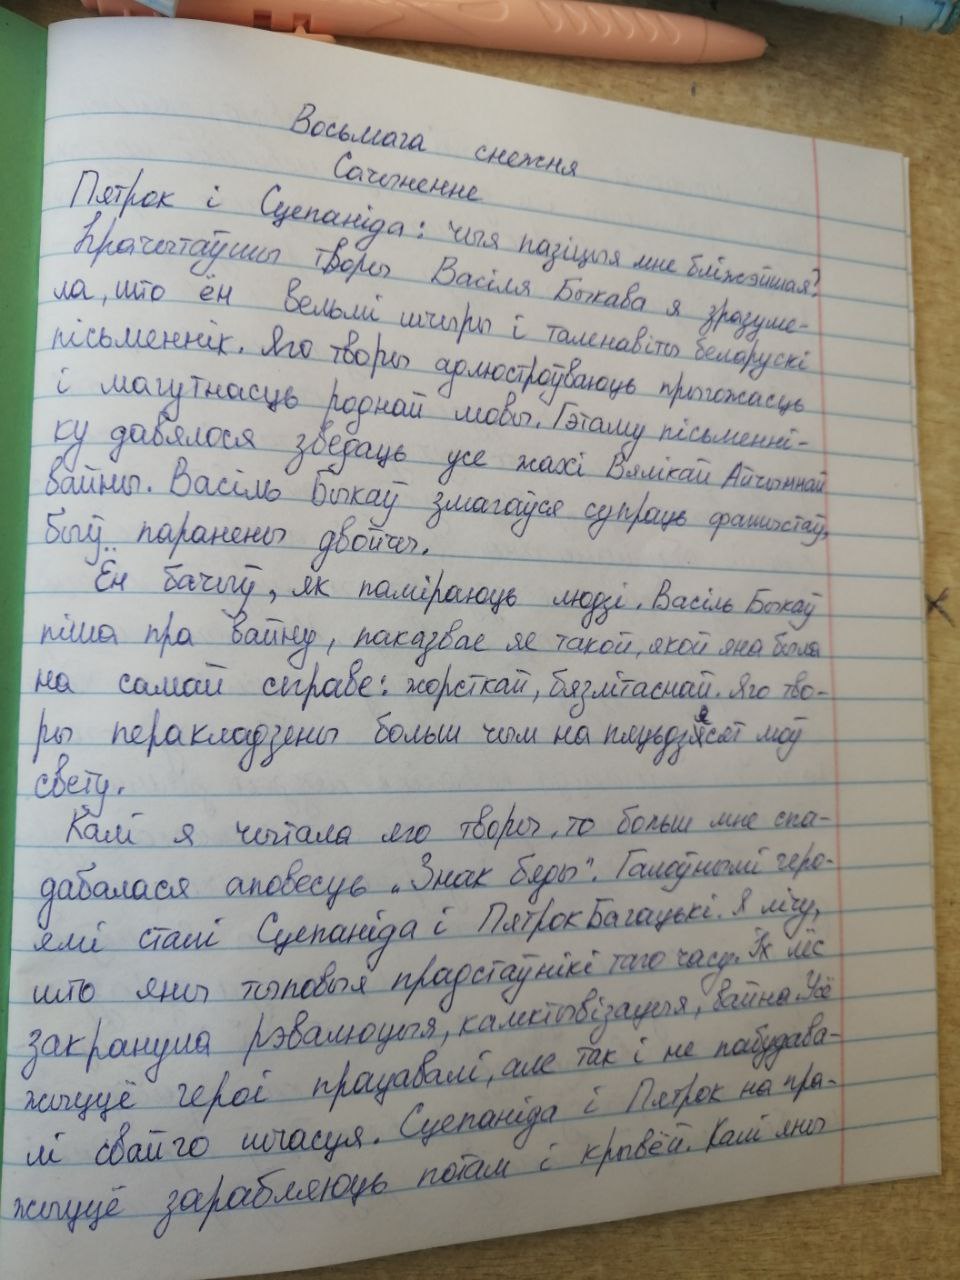 Восьмага снежня
Сачыненне
Пятрок і Сцепаніда: чыя пазіцыя мне бліжэйшая?
Прачытаўшы творы Васіля Быкава я зразуме-
ла, што ён вельмі шчыры і таленавіты беларускі
пісьменнік. Яго творы адлюстроўваюць прыгожасць
і магутнасць роднай мовы. Гэтаму пісьменні-
ку давялося зведаць усе жахі Вялікай Айчыннай
вайны. Васіль Быкаў змагаўся супраць фашыстаў,
быў паранены двойчы.
Ён бачыў, як паміраюць людзі. Васіль Быкаў
піша пра вайну, паказвае яе такой, якой яна была
на самай справе: жорсткай, бязлітаснай. Яго тво-
ры перакладзены больш чым на пяцьдзясят моў
свету.
Калі я чытала яго творы, то больш мне спа-
дабалася аповесць "Знак бяды". Галоўнымі геро-
ямі сталі Сцепаніда і Пятрок Багацькі. Я лічу,
што яны тыповыя прадстаўнікі таго часу. Іх лёс
закранула рэвалюцыя, калктывізацыя, вайна. Усё
жыццё героі працавалі, але так і не пабудава-
лі свайго шчасця. Сцепаніда і Пятрок на пра-
жыццё зарабляюць потам і крывёй. Калі яны